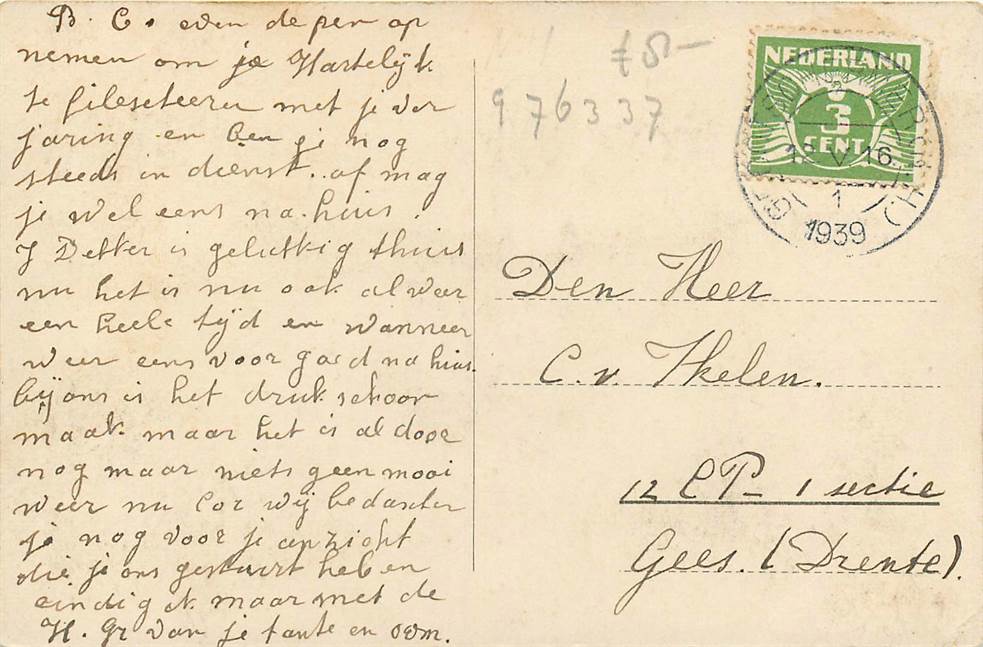 B. C. even de pen op
nemen om je Hartelijk
te fileseteeren met je ver
jaring en ben ji nog
steeds in dienst. of mag
je wel eens na huis.
J Dekker is gelukkig thuis
nu het is nu ook al weer
een heele tijd en wanneer
weer eens voor goed na huis.
bij ons is het druk schoon
maak maar het is al door
nog maar niets geen mooi
weer nu Cor wij bedankten
je nog voor je anzicht
die je ons gestuurt heb en
eindig ik maar met de
H. Gr van je tante en oom.
f 8-
976337
NEDERLAND
3
CENT
12 V 16
1
1939
Den Heer
C. v. Ikelen.
12 CP- 1 sectie
Gees. (Drente).